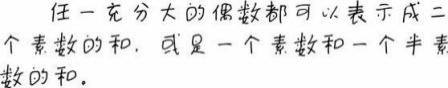 任一充分大的偶数都可以表示成二
个素数的和，或是一个素数和一个半素
数的和。